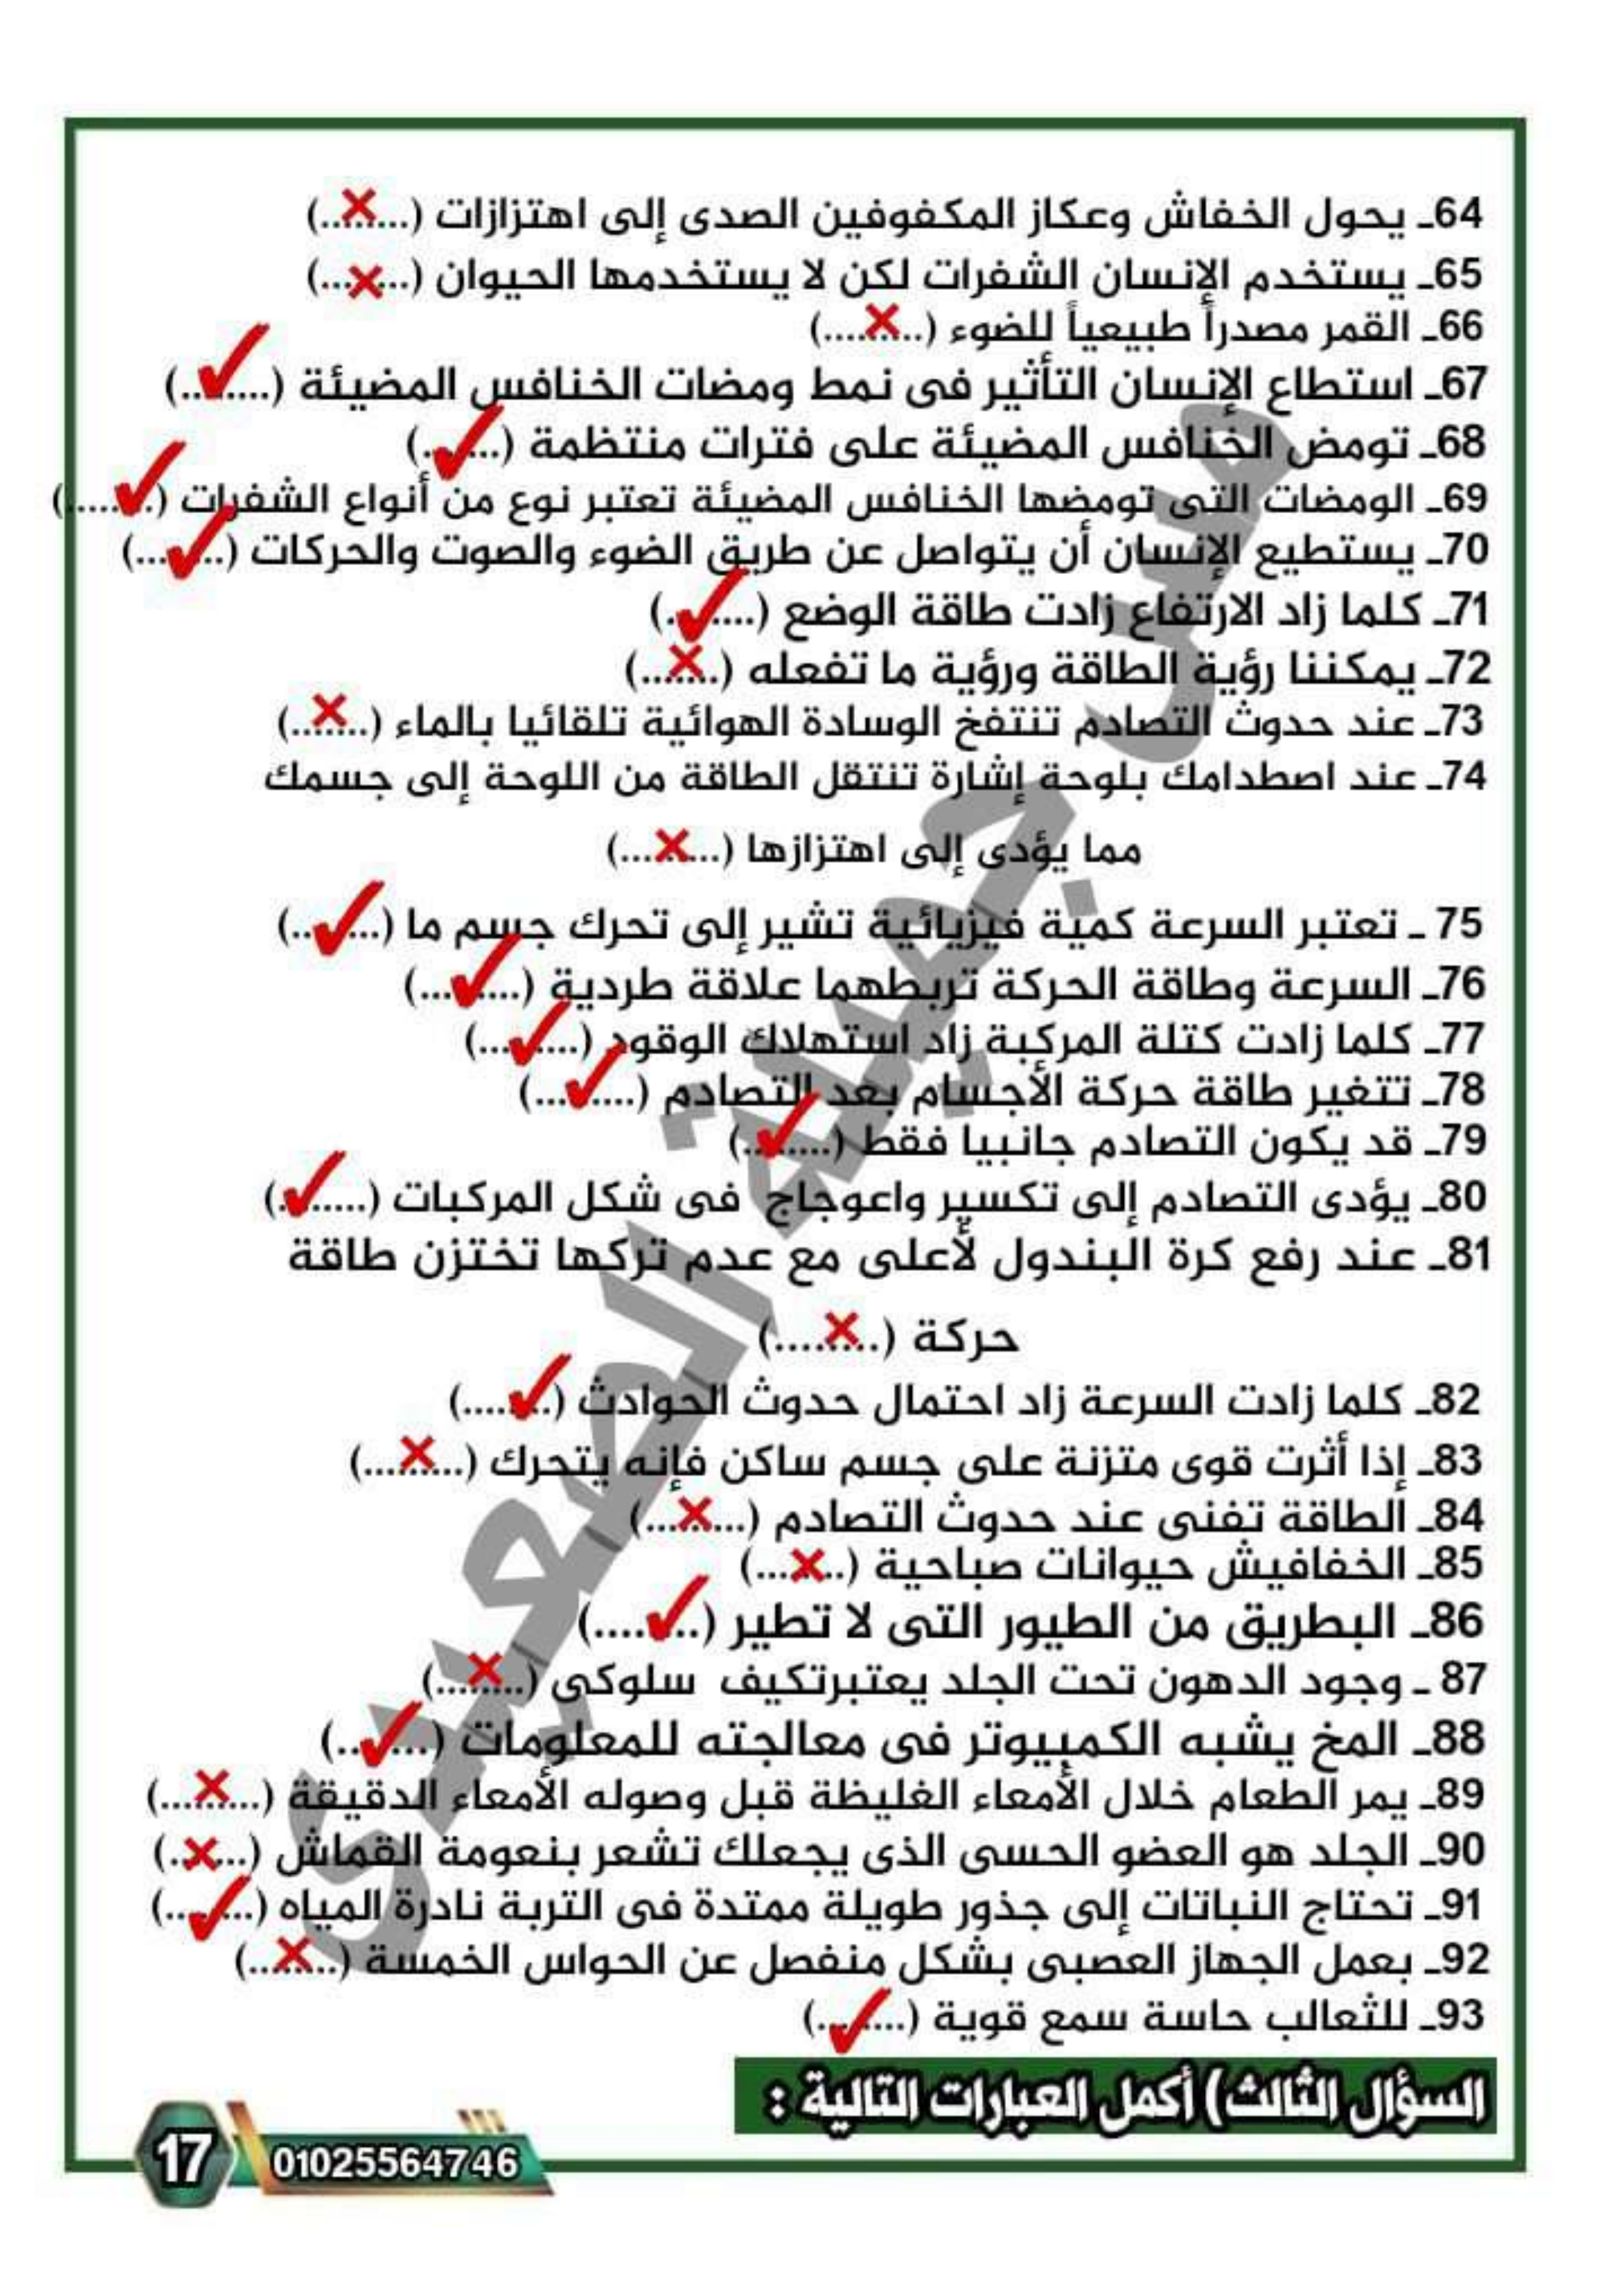 64ـ يحول الخفاش وعكاز المكفوفين الصدى إلى اهتزازات (...❌.....)
65ـ يستخدم الإنسان الشفرات لكن لا يستخدمها الحيوان (...❌.....)
66ـ القمر مصدراً طبيعياً للضوء (...❌.....)
67ـ استطاع الإنسان التأثير فى نمط ومضات الخنافس المضيئة (...✓.....)
68ـ تومض الخنافس المضيئة على فترات منتظمة (...✓.....)
69ـ الومضات التى تومضها الخنافس المضيئة تعتبر نوع من أنواع الشفرات (...✓.....)
70ـ يستطيع الإنسان أن يتواصل عن طريق الضوء والصوت والحركات (...✓.....)
71ـ كلما زاد الارتفاع زادت طاقة الوضع (...✓.....)
72ـ يمكننا رؤية الطاقة ورؤية ما تفعله (...❌.....)
73ـ عند حدوث التصادم تنتفخ الوسادة الهوائية تلقائيا بالماء (...❌.....)
74ـ عند اصطدامك بلوحة إشارة تنتقل الطاقة من اللوحة إلى جسمك
مما يؤدى إلى اهتزازها (...❌.....)
75 ـ تعتبر السرعة كمية فيزيائية تشير إلى تحرك جسم ما (...✓.....)
76ـ السرعة وطاقة الحركة تربطهما علاقة طردية (...✓.....)
77ـ كلما زادت كتلة المركبة زاد استهلاك الوقود (...✓.....)
78ـ تتغير طاقة حركة الأجسام بعد التصادم (...✓.....)
79ـ قد يكون التصادم جانبيا فقط (...✓.....)
80ـ يؤدى التصادم إلى تكسير واعوجاج فى شكل المركبات (...✓.....)
81ـ عند رفع كرة البندول لأعلى مع عدم تركها تختزن طاقة
حركة (...❌.....)
82ـ كلما زادت السرعة زاد احتمال حدوث الحوادث (...✓.....)
83ـ إذا أثرت قوى متزنة على جسم ساكن فإنه يتحرك (...❌.....)
84ـ الطاقة تفنى عند حدوث التصادم (...❌.....)
85ـ الخفافيش حيوانات صباحية (...❌.....)
86ـ البطريق من الطيور التى لا تطير (...✓.....)
87 ـ وجود الدهون تحت الجلد يعتبرتكيف سلوكى (...❌.....)
88ـ المخ يشبه الكمبيوتر فى معالجته للمعلومات (...✓.....)
89ـ يمر الطعام خلال الأمعاء الغليظة قبل وصوله الأمعاء الدقيقة (...❌.....)
90ـ الجلد هو العضو الحسى الذى يجعلك تشعر بنعومة القماش (...❌.....)
91ـ تحتاج النباتات إلى جذور طويلة ممتدة فى التربة نادرة المياه (...✓.....)
92ـ بعمل الجهاز العصبى بشكل منفصل عن الحواس الخمسة (...❌.....)
93ـ للثعالب حاسة سمع قوية (...✓.....)
السؤال الثالث) أكمل العبارات التالية :
17
01025564746
مس جميلة الصعيدى